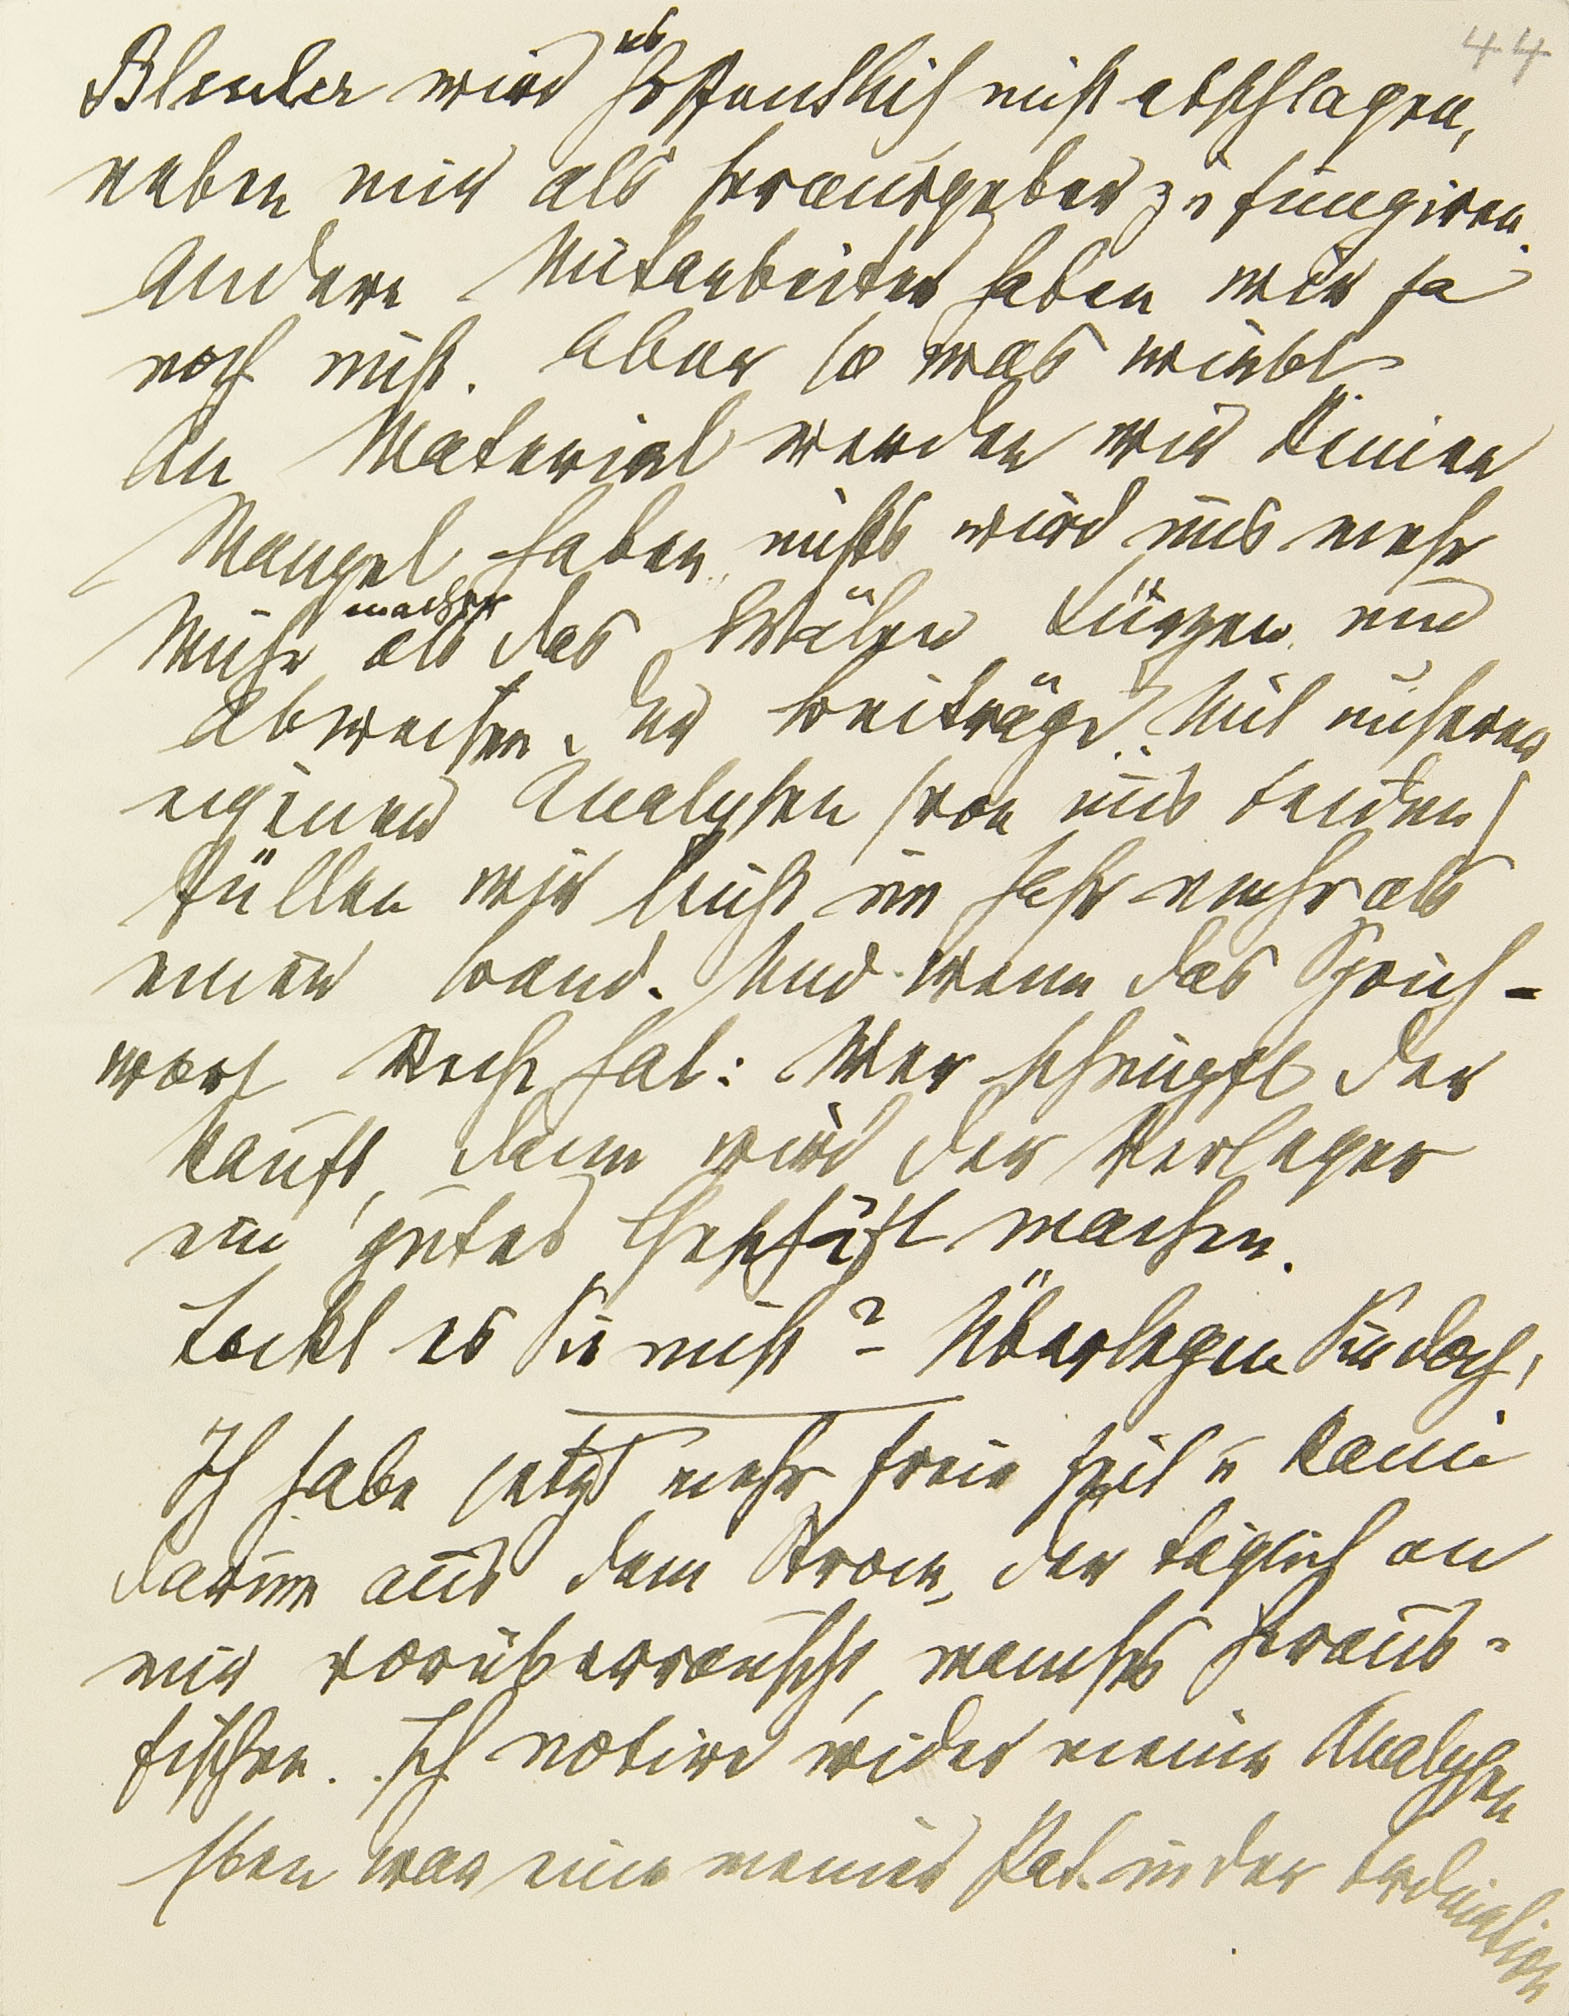 44
Bleuler wird es hoffentlich nicht abschlagen,
neben mir als Herausgeber zu fungiren.
Andere Mitarbeiter haben wir ja
noch nicht. Aber so was wirbt.
An Material werden wir keinen
Mangel haben, nichts wird uns mehr
Mühe machen als das Wälen Kürzen und
Abweisen der Beiträge. Mit unseren
eigenen Analysen (von uns beiden)
füllen wir leicht im Jahr mehr als
einen Band. Und wenn das Sprich-
wort Recht hat: Wer schimpft der
kauft, dann wird der Verleger
ein gutes Geschäft machen.
Lockt es Sie nicht? Überlegen Sie doch!
Ich habe jetzt mehr freie Zeit u kann
darum aus dem Strom, der täglich an
mir vorüberrauscht, manches heraus-
fischen. Ich notire wider meine Analysen
Eben war eine meiner Pat. in der Ordination